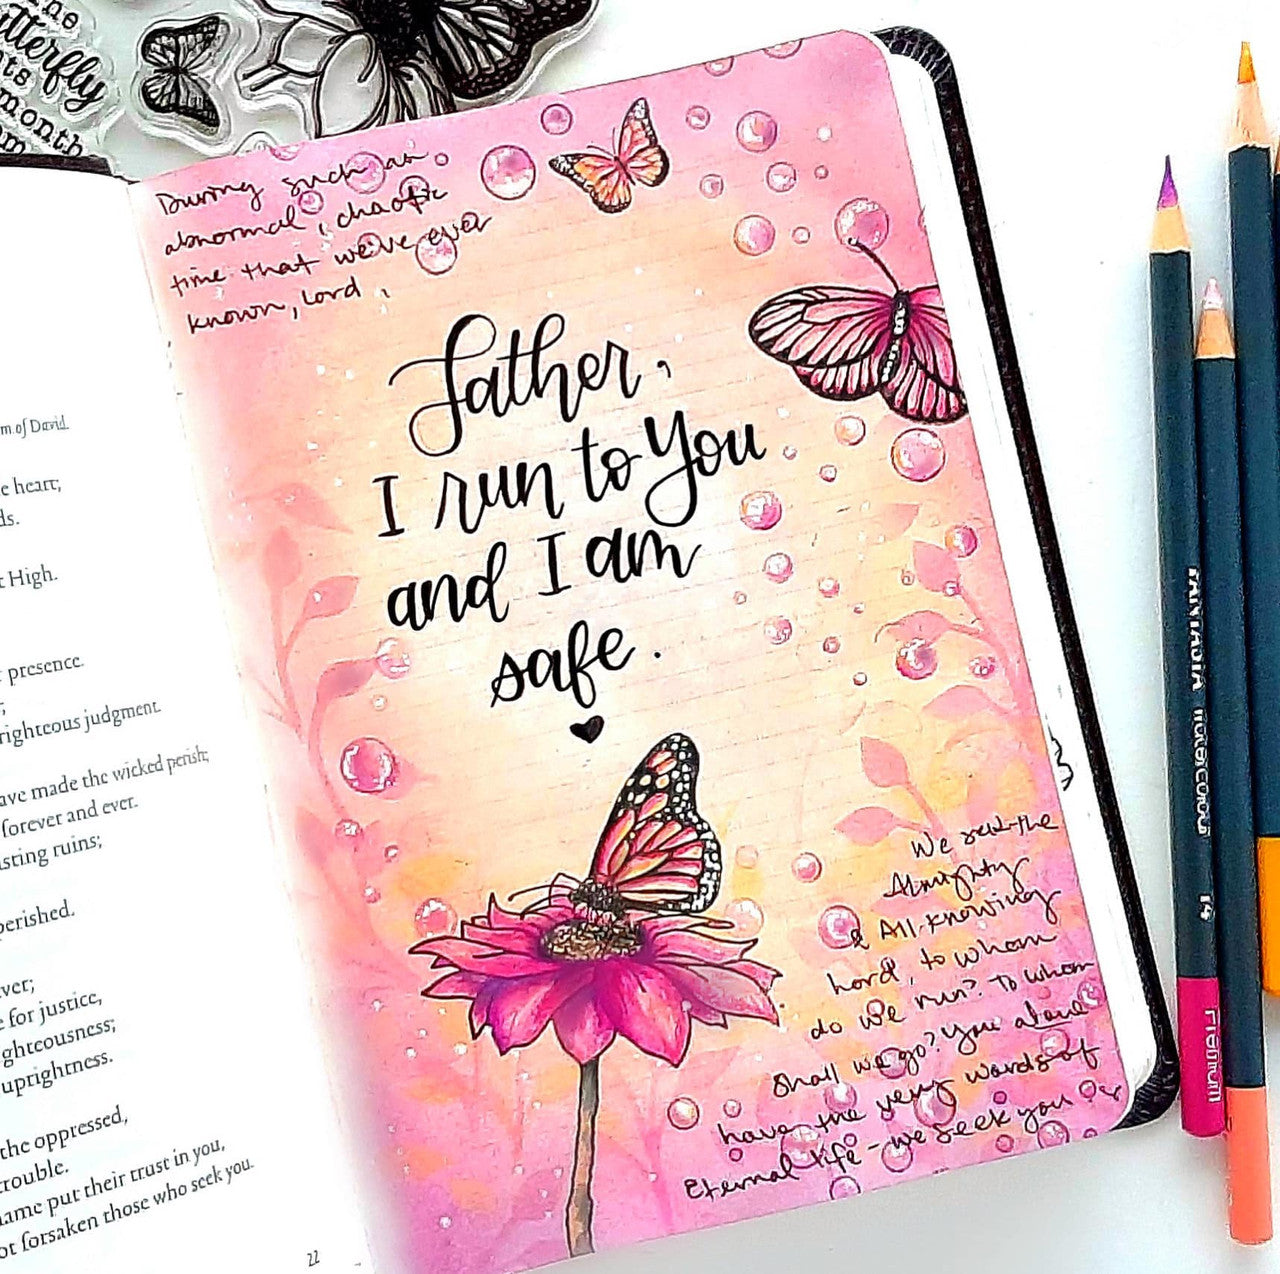 the
utterfly
month
m of David.
e heart;
ds.
t High.
presence.
righteous judgment.
ave made the wicked perish;
forever and ever.
sting ruins;
perished.
ver;
e for justice,
ghteousness;
uprightness.
the oppressed,
trouble.
name put their trust in you,
ot forsaken those who seek you.
22
During such an
abnormal, chaotic
time that we've ever
known, Lord,
Father,
I run to You
and I am
safe.
We seek the
Almighty
& All-knowing
Lord, to whom
do we run? To whom
shall we go? You alone
have the very words of
Eternal life - we seek you
PREMIUM